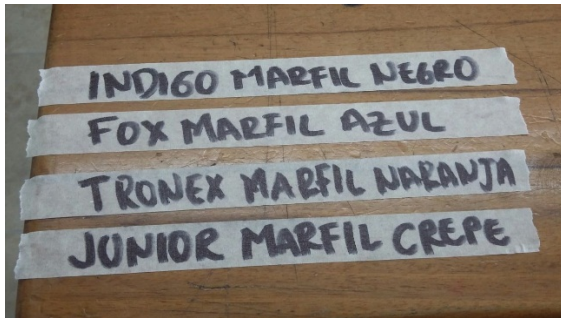 INDIGO MARFIL NEGRO
FOX MARFIL AZUL
TRONEX MARFIL NARANJA
JUNIOR MARFIL CREPE